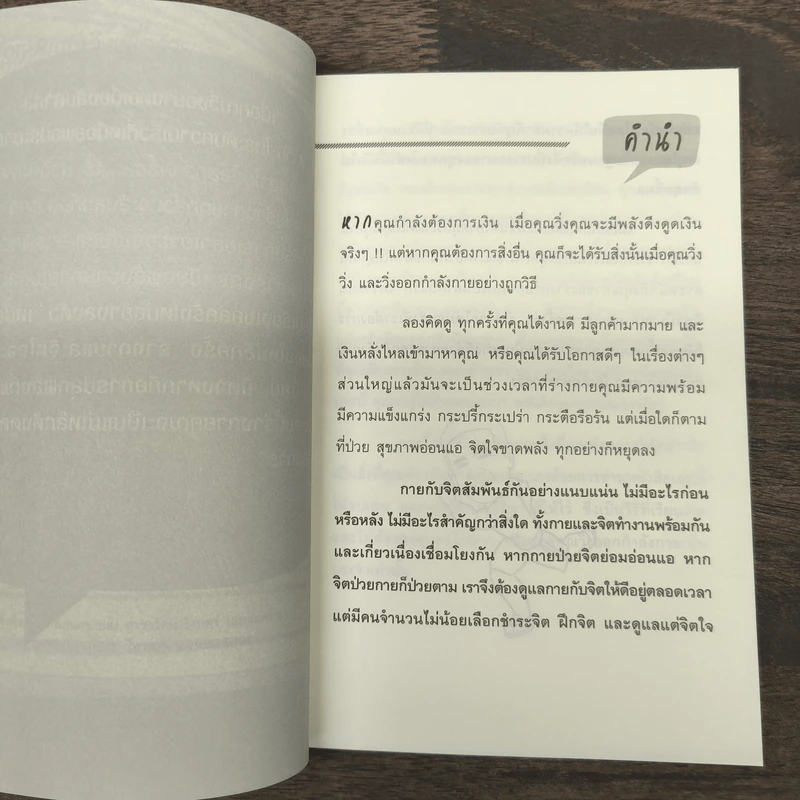 คำนำ
หากคุณกำลังต้องการเงิน เมื่อคุณวิ่งคุณจะมีพลังดึงดูดเงิน
จริงๆ !! แต่หากคุณต้องการสิ่งอื่น คุณก็จะได้รับสิ่งนั้นเมื่อคุณวิ่ง
วิ่ง และวิ่งออกกำลังกายอย่างถูกวิธี
ลองคิดดู ทุกครั้งที่คุณได้งานดี มีลูกค้ามากมาย และ
เงินหลั่งไหลเข้ามาหาคุณ หรือคุณได้รับโอกาสดีๆ ในเรื่องต่างๆ
ส่วนใหญ่แล้วมันจะเป็นช่วงเวลาที่ร่างกายคุณมีความพร้อม
มีความแข็งแกร่ง กระปรี้กระเปร่า กระตือรือร้น แต่เมื่อใดก็ตาม
ที่ป่วย สุขภาพอ่อนแอ จิตใจขาดพลัง ทุกอย่างก็หยุดลง
กายกับจิตสัมพันธ์กันอย่างแนบแน่น ไม่มีอะไรก่อน
หรือหลัง ไม่มีอะไรสำคัญกว่าสิ่งใด ทั้งกายและจิตทำงานพร้อมกัน
และเกี่ยวเนื่องเชื่อมโยงกัน หากกายป่วยจิตย่อมอ่อนแอ หาก
จิตป่วยกายก็ป่วยตาม เราจึงต้องดูแลกายกับจิตให้ดีอยู่ตลอดเวลา
แต่มีคนจำนวนไม่น้อยเลือกชำระจิต ฝึกจิต และดูแลแต่จิตใจ